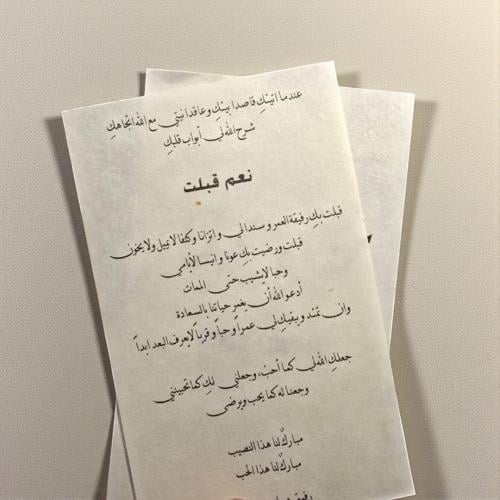 عندما اتيتكِ قاصدا بيتكِ وعاقدا نيتي مع الله اتجاهكِ
شرح الله لي أبواب قلبكِ
نعم قبلت
قبلت بكِ رفيقة العمر وسندا لي واتزانا وكتفا لا يميل ولا يخون
قبلت ورضيت بكِ عونا وانيسا لأيامي
وحبا لا يشيب حتى الممات
أدعو الله أن يغمر حياتنا بالسعادة
وان تمتد ويبقيكِ لي عمراً وحباً وقرباً لا يعرف البعد ابداً
جعلكِ الله لي كما أحب، وجعلني لكِ كما تحبينني
وجعنا له كما يحب ويرضى
مباركٌ لنا هذا النصيب
مباركٌ لنا هذا الحب